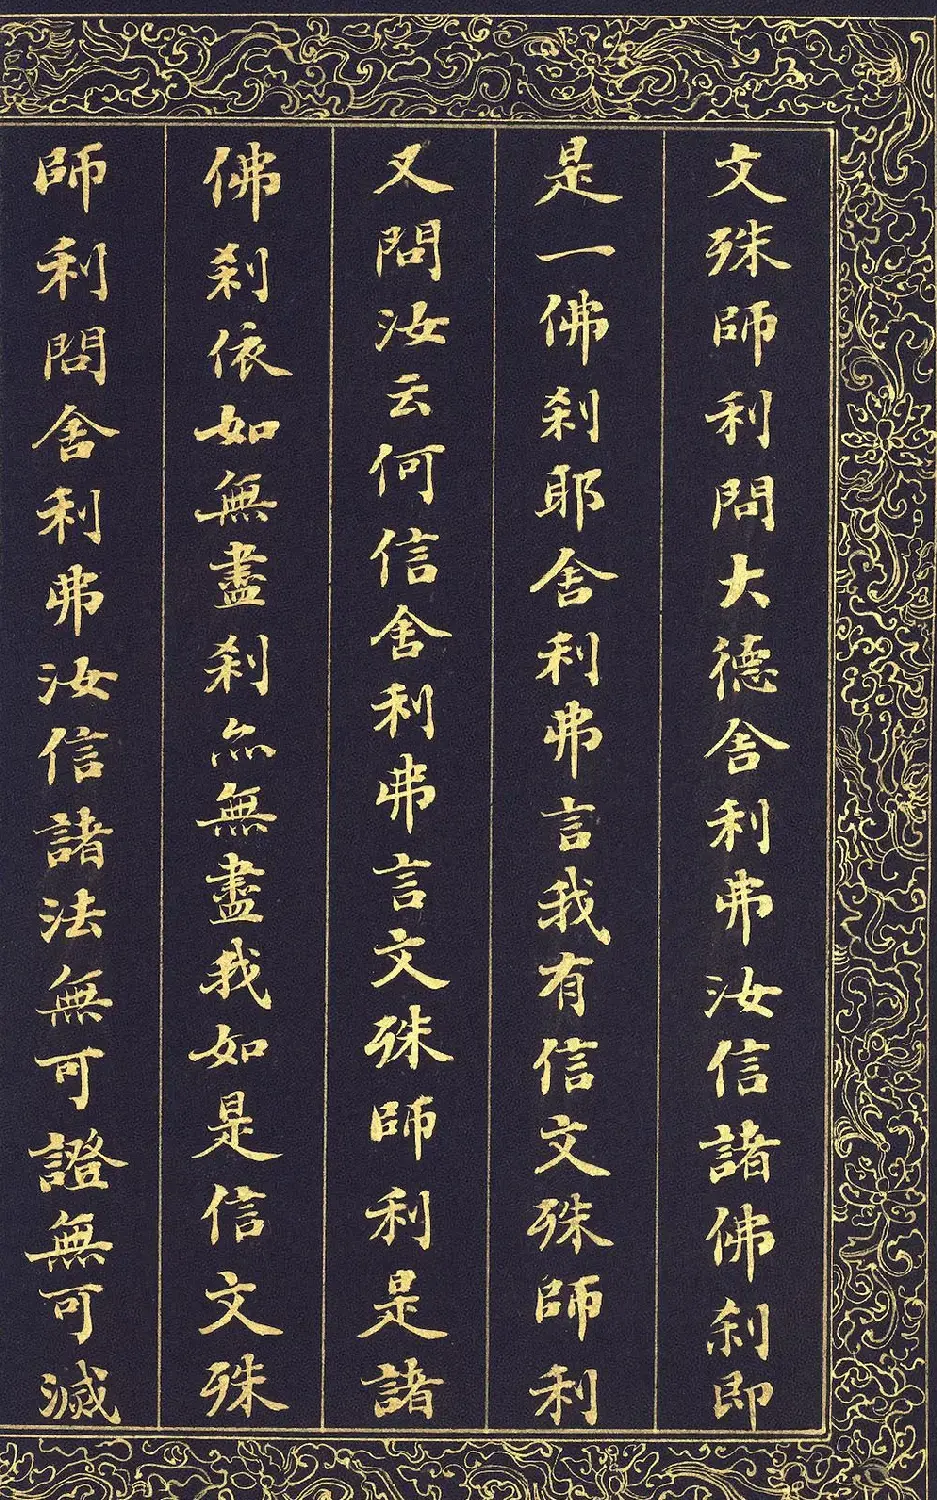 文殊師利問大德舍利弗汝信諸佛刹即
是一佛刹耶舍利弗言我有信文殊師利
又問汝云何信舍利弗言文殊師利是諸
佛刹依如無盡刹尒無盡我如是信文殊
師利問舍利弗汝信諸法無可證無可滅